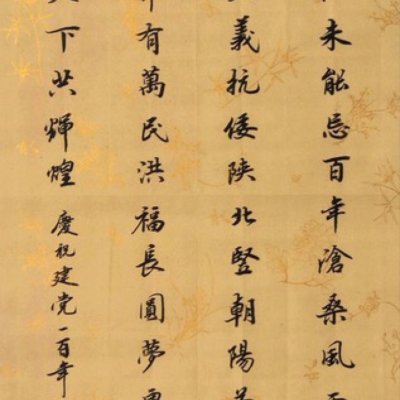 未能忘百年滄桑風
義抗倭陝北豎朝陽
有萬民洪福長圓夢
下共輝煌
慶祝建党一百年